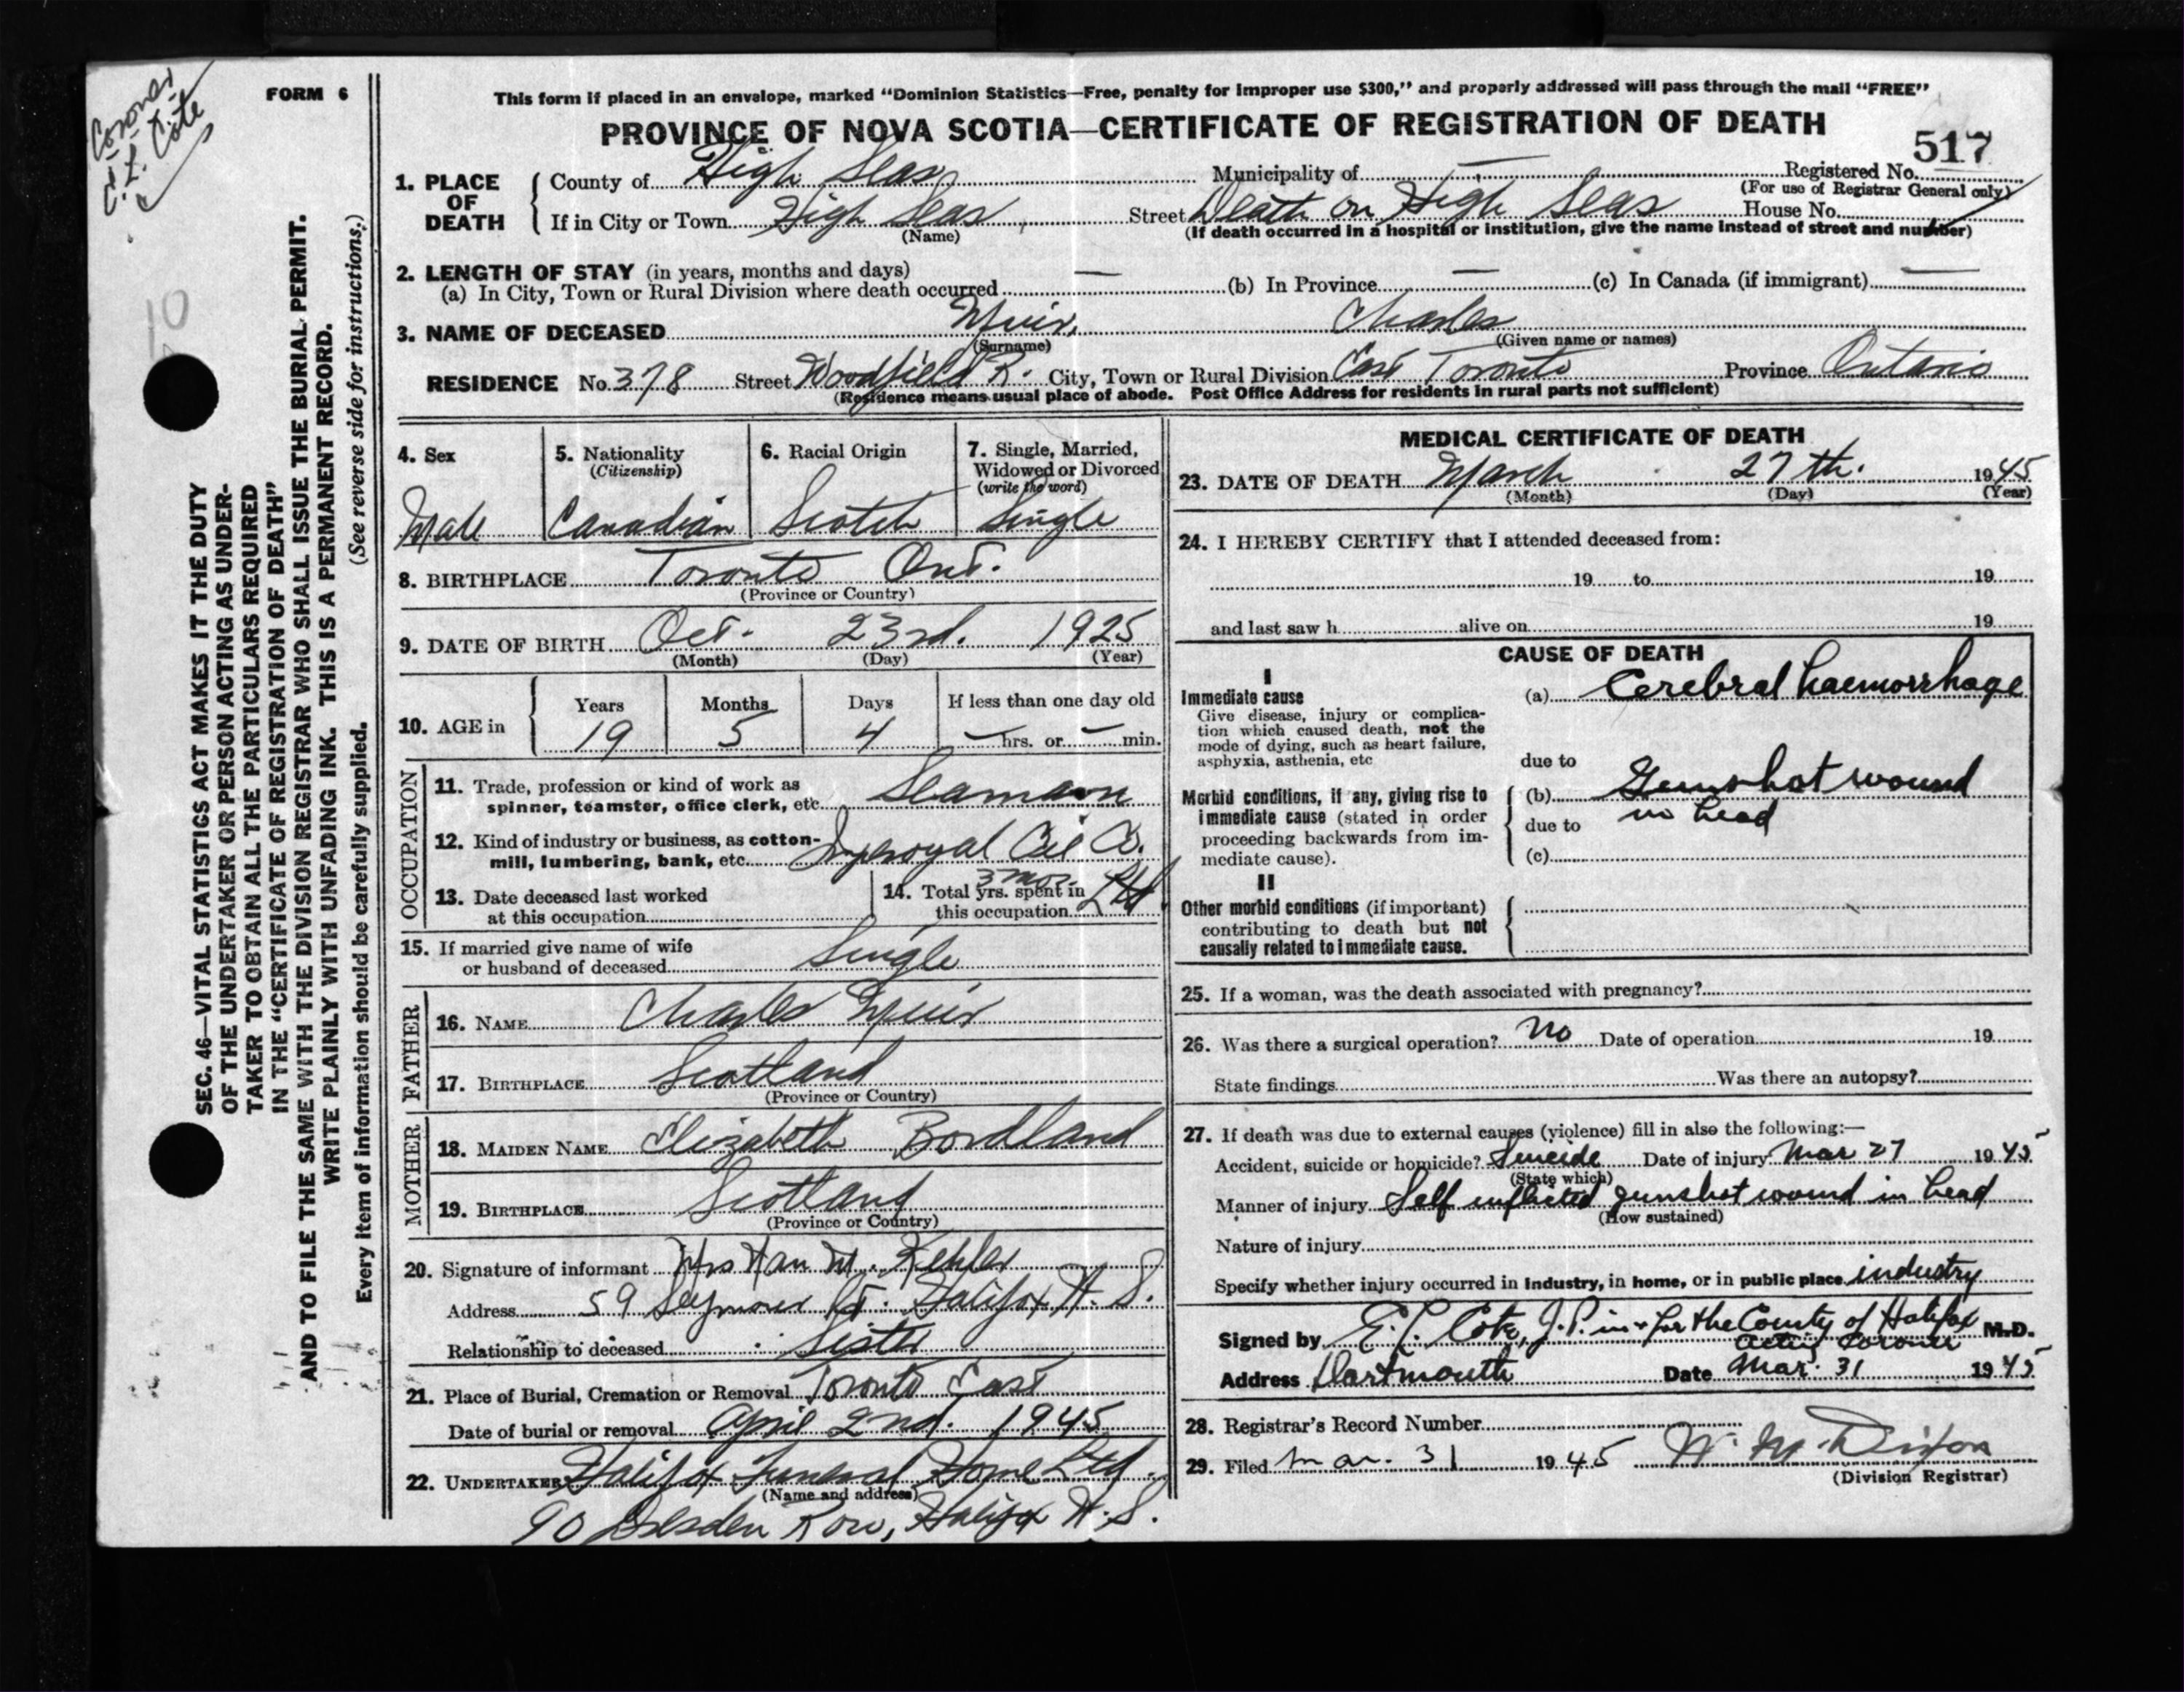 Coroner
E. L. Cote
FORM 6
This form if placed in an envelope, marked "Dominion Statistics—Free, penalty for improper use $300," and properly addressed will pass through the mail "FREE"
PROVINCE OF NOVA SCOTIA—CERTIFICATE OF REGISTRATION OF DEATH
517
1. PLACE OF DEATH
County of High Seas Municipality of — Registered No.
(For use of Registrar General only)
If in City or Town High Seas Street Death on High Seas House No.
(Name) (If death occurred in a hospital or institution, give the name instead of street and number)
2. LENGTH OF STAY (in years, months and days)
(a) In City, Town or Rural Division where death occurred — (b) In Province — (c) In Canada (if immigrant) —
3. NAME OF DECEASED Muir, Charles
(Surname) (Given name or names)
RESIDENCE No. 378 Street Woodfield R. City, Town or Rural Division East Toronto Province Ontario
(Residence means usual place of abode. Post Office Address for residents in rural parts not sufficient)
4. Sex
Male
5. Nationality
(Citizenship)
Canadian
6. Racial Origin
Scotch
7. Single, Married,
Widowed or Divorced
(write the word)
Single
8. BIRTHPLACE Toronto Ont.
(Province or Country)
9. DATE OF BIRTH Oct. 23rd. 1925
(Month) (Day) (Year)
10. AGE in
Years Months Days If less than one day old
19 5 4 — hrs. or — min.
OCCUPATION
11. Trade, profession or kind of work as
spinner, teamster, office clerk, etc. Seaman
12. Kind of industry or business, as cotton-
mill, lumbering, bank, etc. Imperoyal Oil Co.
Ltd
13. Date deceased last worked
at this occupation
14. Total yrs. spent in
this occupation 3 mos.
15. If married give name of wife
or husband of deceased Single
FATHER
16. NAME Charles Muir
17. BIRTHPLACE Scotland
(Province or Country)
MOTHER
18. MAIDEN NAME Elizabeth Bordland
19. BIRTHPLACE Scotland
(Province or Country)
20. Signature of informant Mrs Nan M. Kehler
Address 59 Seymour St. Halifax N. S.
Relationship to deceased Sister
21. Place of Burial, Cremation or Removal Toronto East
Date of burial or removal April 2nd. 1945
22. UNDERTAKER Halifax Funeral Home Ltd.
(Name and address)
90 Dresden Row, Halifax N. S.
MEDICAL CERTIFICATE OF DEATH
23. DATE OF DEATH March 27th. 1945
(Month) (Day) (Year)
24. I HEREBY CERTIFY that I attended deceased from:
19 to 19
and last saw h alive on 19
CAUSE OF DEATH
I
Immediate cause
Give disease, injury or complica-
tion which caused death, not the
mode of dying, such as heart failure,
asphyxia, asthenia, etc
(a) Cerebral haemorrhage
due to
Morbid conditions, if any, giving rise to
immediate cause (stated in order
proceeding backwards from im-
mediate cause).
(b) Gunshot wound
due to in head
(c)
II
Other morbid conditions (if important)
contributing to death but not
causally related to immediate cause.
25. If a woman, was the death associated with pregnancy?
26. Was there a surgical operation? No Date of operation 19
State findings Was there an autopsy?
27. If death was due to external causes (violence) fill in also the following:—
Accident, suicide or homicide? Suicide Date of injury Mar 27 1945
(State which)
Manner of injury Self inflicted gunshot wound in head
(How sustained)
Nature of injury
Specify whether injury occurred in industry, in home, or in public place industry
Signed by E. L. Cote, J. P. in & for the County of Halifax M.D.
Acting Coroner
Address Dartmouth Date Mar. 31 1945
28. Registrar's Record Number
29. Filed Mar. 31 1945 W. M. Dixon
(Division Registrar)
SEC. 46—VITAL STATISTICS ACT MAKES IT THE DUTY
OF THE UNDERTAKER OR PERSON ACTING AS UNDER-
TAKER TO OBTAIN ALL THE PARTICULARS REQUIRED
IN THE "CERTIFICATE OF REGISTRATION OF DEATH"
AND TO FILE THE SAME WITH THE DIVISION REGISTRAR WHO SHALL ISSUE THE BURIAL PERMIT.
WRITE PLAINLY WITH UNFADING INK. THIS IS A PERMANENT RECORD.
Every item of information should be carefully supplied. (See reverse side for instructions.)
10